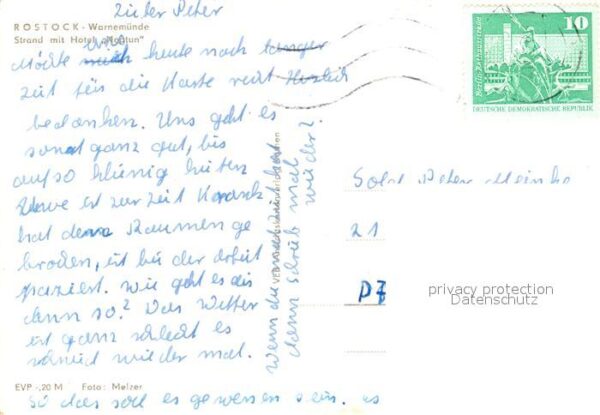 Lieber Peter
ROSTOCK - Warnemünde
Strand mit Hotel „Neptun"
Möchte mich heute nach langer
Zeit für die Karte recht Herzlich
bedanken. Uns geht es
sonst ganz gut, bis
auf so kleinig keiten
Uwe ist zur Zeit Krank
hat den Daumen ge
broden, ist bei der Arbeit
paziert. Wie geht es dir
denn so? Das Wetter
ist ganz schlecht es
schneid wieder mal.
So das soll es gewesen sein.
Wenn du Zeit hast
dann schreib mal
wieder?
EVP -,20 M Foto: Melzer
10
Berlin-Rathausstraße
DEUTSCHE DEMOKRATISCHE REPUBLIK
Soldt Peter
21
PF
privacy protection
Datenschutz